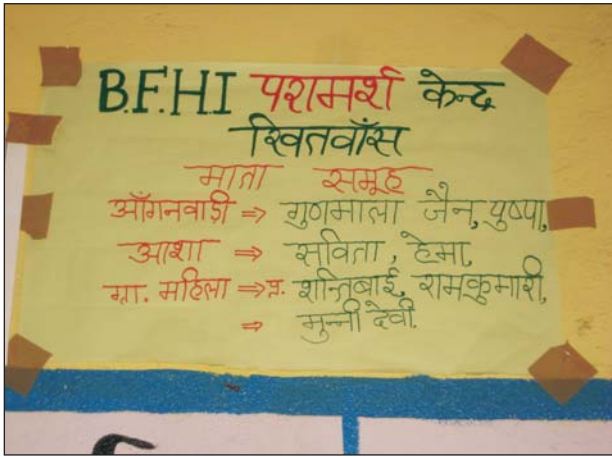 B.F.H.I परामर्श केन्द्र
खितवाँस
माता समूह
आँगनवाडी ⇒ गुणमाला जैन, पुष्पा,
आशा ⇒ सविता, हेमा,
ग्रा. महिला ⇒ प्र. शान्तिबाई, रामकुमारी,
⇒ मुन्नी देवी.